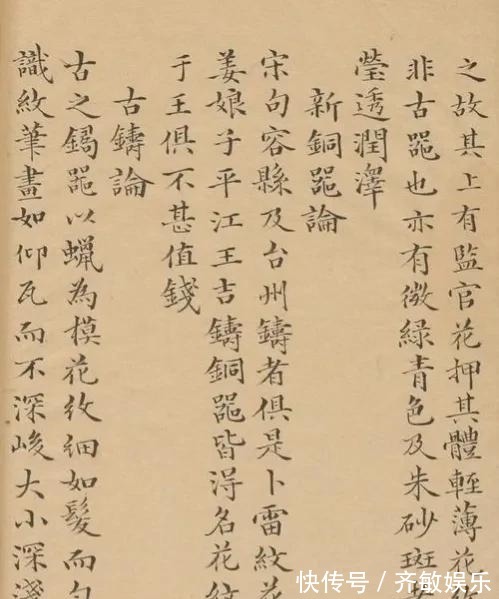 之故其上有監官花押其體輕薄花
非古噐也亦有微綠青色及朱砂斑
瑩透潤澤
新銅噐論
宋句容縣及台州鑄者俱是卜雷紋花
姜娘子平江王吉鑄銅噐皆淂名花紋
于王俱不甚值錢
古鑄論
古之噐以蠟為模花紋細如髮而勻
識紋筆畫如仰瓦而不深峻大小深淺
快传号 / 齐敏娱乐